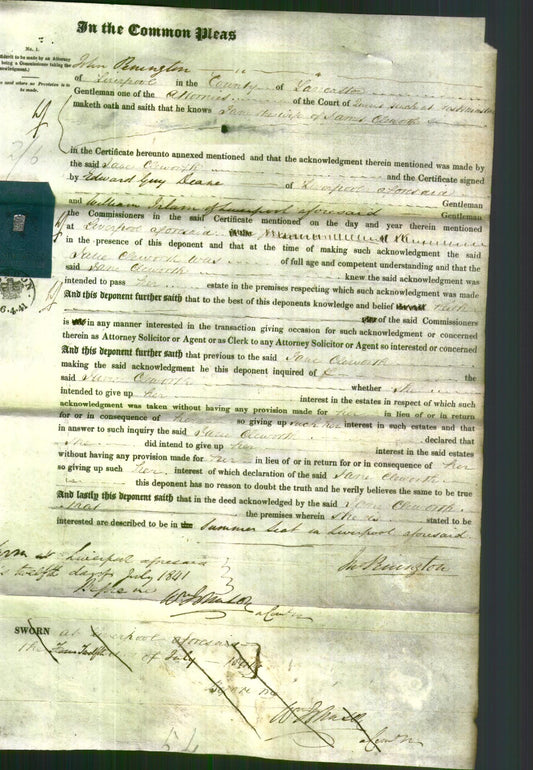 In the Common Pleas
No. 1.
John Penington
of Liverpool in the County of Lancaster
Gentleman one of the Attornies of the Court of
maketh oath and saith that he knows Jane the wife of James
in the Certificate hereunto annexed mentioned and that the acknowledgment therein mentioned was made by
the said Jane and the Certificate signed
by Edward Guy Deane of Liverpool aforesaid Gentleman
and William of Liverpool aforesaid Gentleman
the Commissioners in the said Certificate mentioned on the day and year therein mentioned
at Liverpool aforesaid
in the presence of this deponent and that at the time of making such acknowledgment the said
Jane was of full age and competent understanding and that the
said Jane knew the said acknowledgment was
intended to pass her estate in the premises respecting which such acknowledgment was made
And this deponent further saith that to the best of this deponents knowledge and belief neither
of the said Commissioners
is in any manner interested in the transaction giving occasion for such acknowledgment or concerned
therein as Attorney Solicitor or Agent or as Clerk to any Attorney Solicitor or Agent so interested or concerned
And this deponent further saith that previous to the said Jane
making the said acknowledgment he this deponent inquired of the
said Jane whether she
intended to give up her interest in the estates in respect of which such
acknowledgment was taken without having any provision made for her in lieu of or in return
for or in consequence of her so giving up such her interest in such estates and that
in answer to such inquiry the said Jane declared that
she did intend to give up her interest in the said estates
without having any provision made for her in lieu of or in return for or in consequence of her
so giving up such her interest of which declaration of the said Jane
this deponent has no reason to doubt the truth and he verily believes the same to be true
And lastly this deponent saith that in the deed acknowledged by the said Jane
the premises wherein she is stated to be
interested are described to be in Summer Seat in Liverpool aforesaid
Liverpool aforesaid
twelfth day of July 1841
Before me
Jn Penington
SWORN at Liverpool aforesaid
the Twelfth of July 1841
Before me
6.4.41